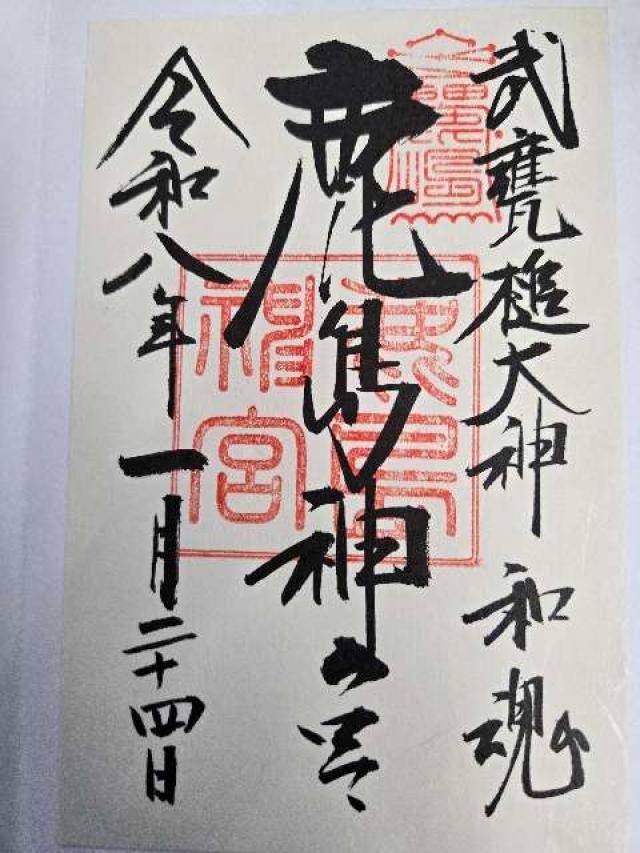 武甕槌大神 和魂
鹿島神宮
鹿島
神宮
令和八年一月二十四日